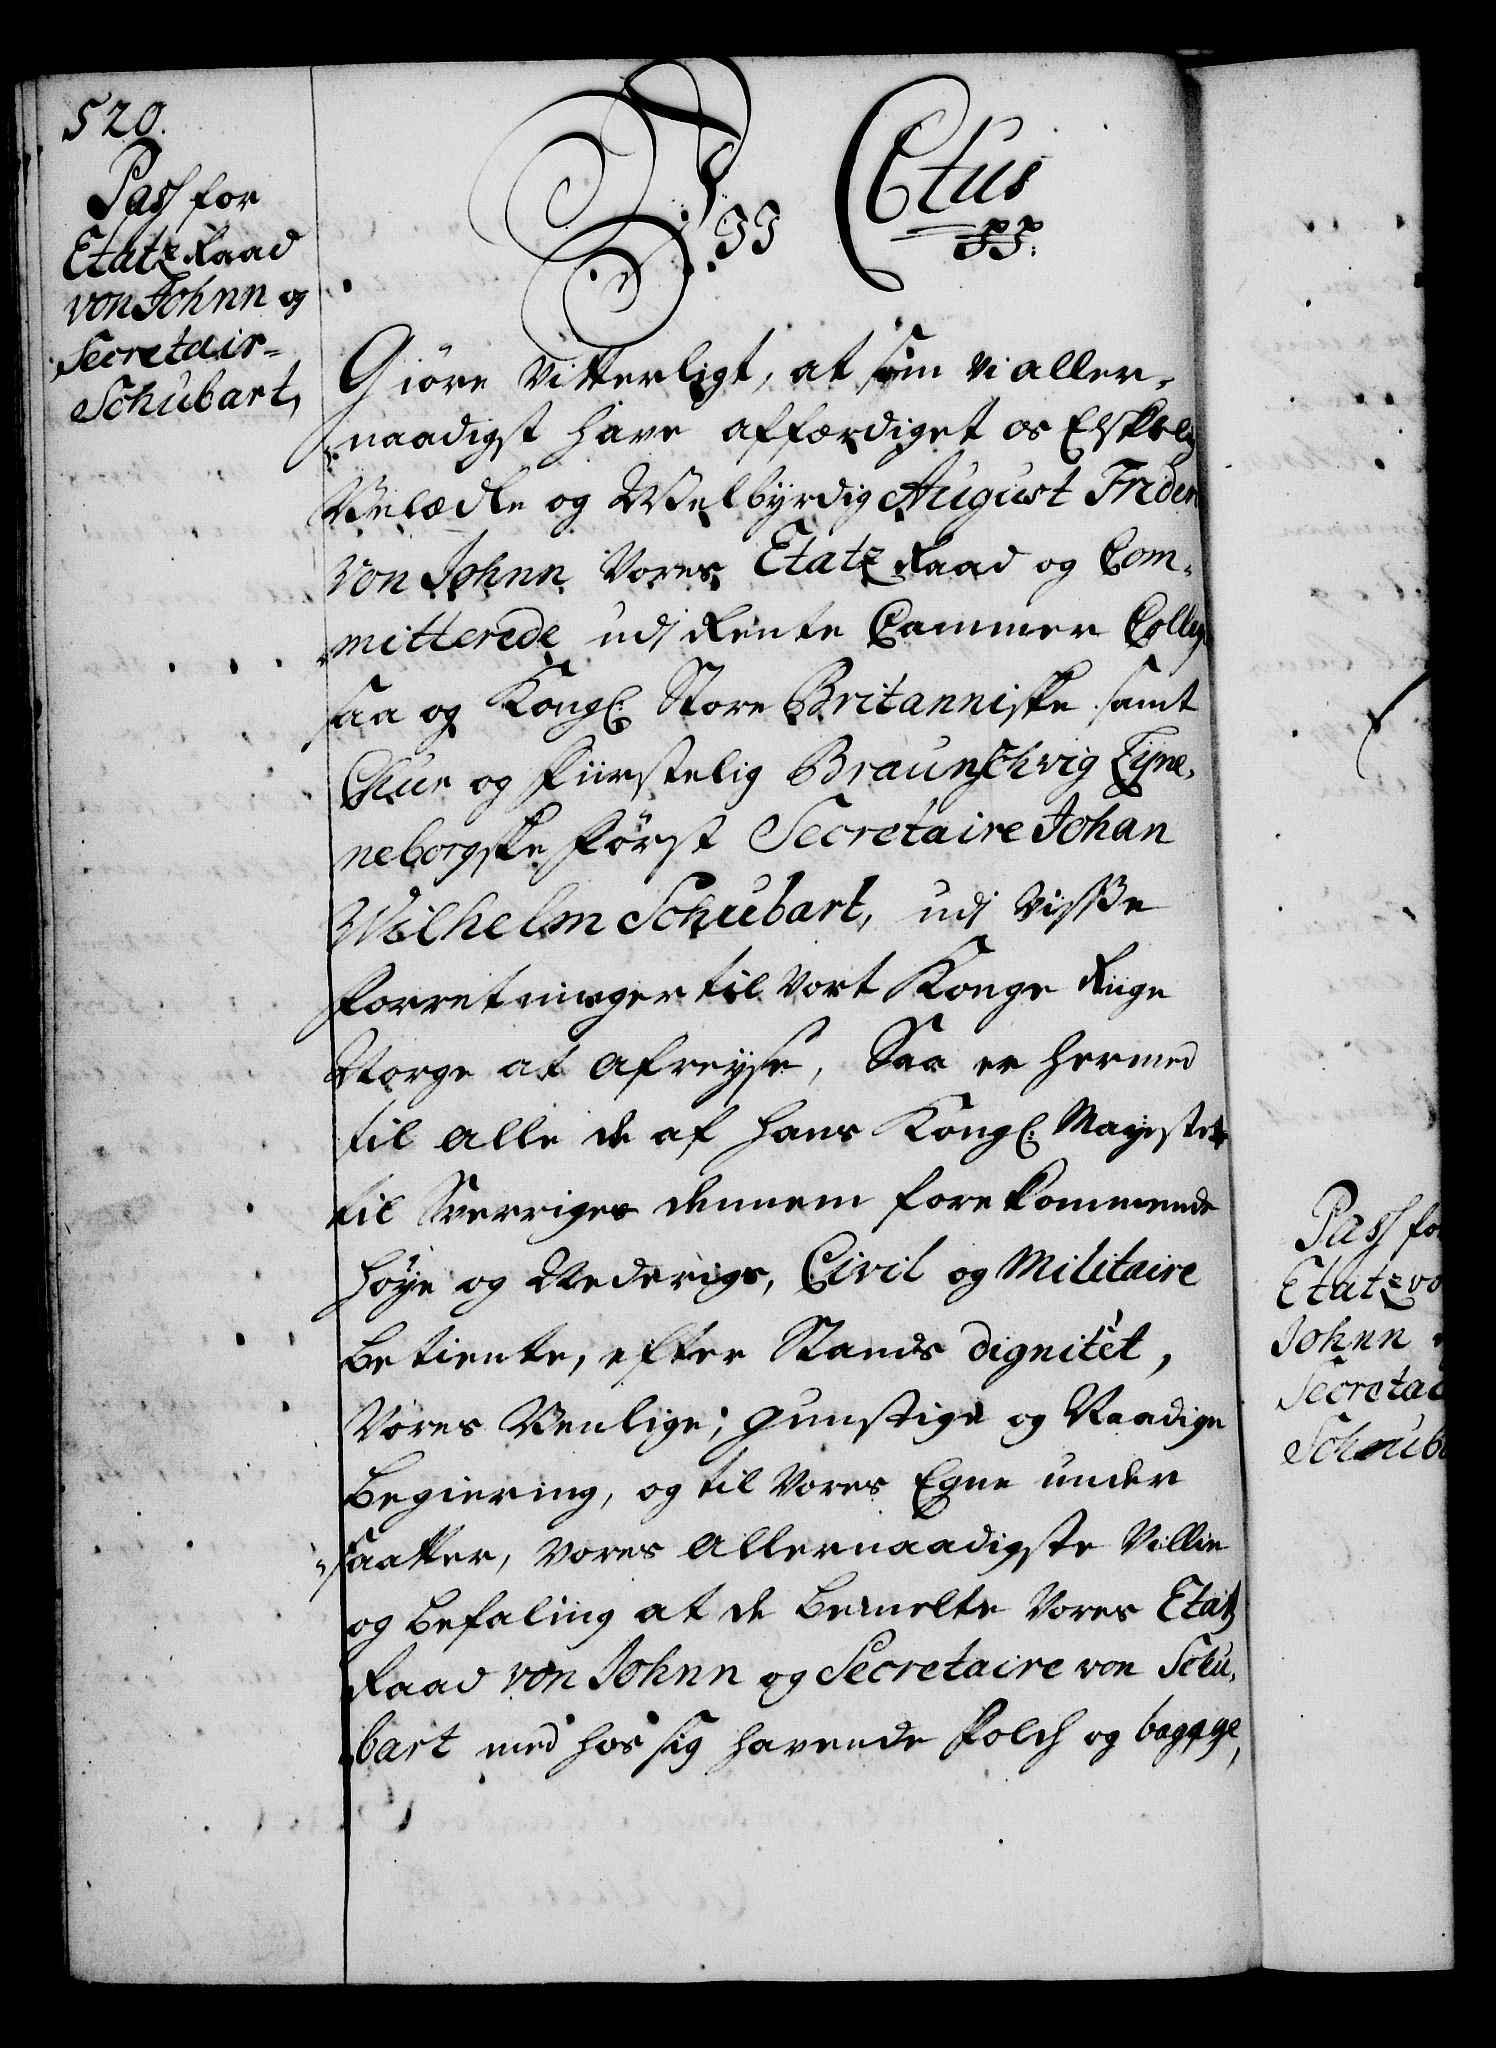 520.
Pass for
Etatz Raad
von Johnn og
Secretair
Schubart,
Ctus
pp.
Giöre vitterligt, at som vi aller-
naadigst have affærdiget os Elskelig
Velædle og Velbyrdig August Frider
von Johnn Vores Etatz Raad og Com-
mitterede udj Rente Cammer Colleg.
saa og Kongl: Store Britanniske samt
Chur og Fürstelig Braunschvig Lyne-
neborgske Först Secretaire Johan
Wilhelm Schubart, udj visse
forretninger til vort Konge Riige
Norge at afreyse, Saa er hermed
til alle de af hans Kongl: Mayestets
til Sverriges dennem forekommende
höye og Nederige, Civil og Militaire
betiente, efter Stands dignitét,
Vores Venlige, gunstige og Naadige
begiering, og til Vores Egne under
saatter, vores allernaadigste Villie
og befaling at de bemelte Vores Etatz
Raad von Johnn og Secretaire von Schu-
bart med hos sig havende folch og bagage,
Pass for
Etatz vo
Johnn
Secretai
Schub